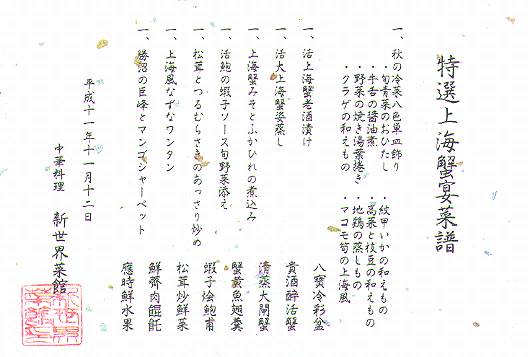 特選上海蟹宴菜譜
一、秋の冷菜八色単皿飾り
・旬青菜のおひたし
・牛舌の醤油煮
・野菜の焼き湯葉捲き
・クラゲの和えもの
・紋甲いかの和えもの
・高菜と枝豆の和えもの
・地鶏の蒸しもの
・マコモ筍の上海風
八寶冷彩盆
一、活上海蟹老酒漬け
貴酒酔活蟹
一、活大上海蟹姿蒸し
清蒸大閘蟹
一、上海蟹みそとふかひれの煮込み
蟹黄魚翅羹
一、活鮑の蝦子ソース旬野菜添え
蝦子烩鮑甫
一、松茸とつるむらさきのあっさり炒め
松茸炒鮮菜
一、上海風なずなワンタン
鮮薺肉餛飩
一、勝沼の巨峰とマンゴシャーベット
應時鮮水果
平成十一年十一月十二日
中華料理 新世界菜館